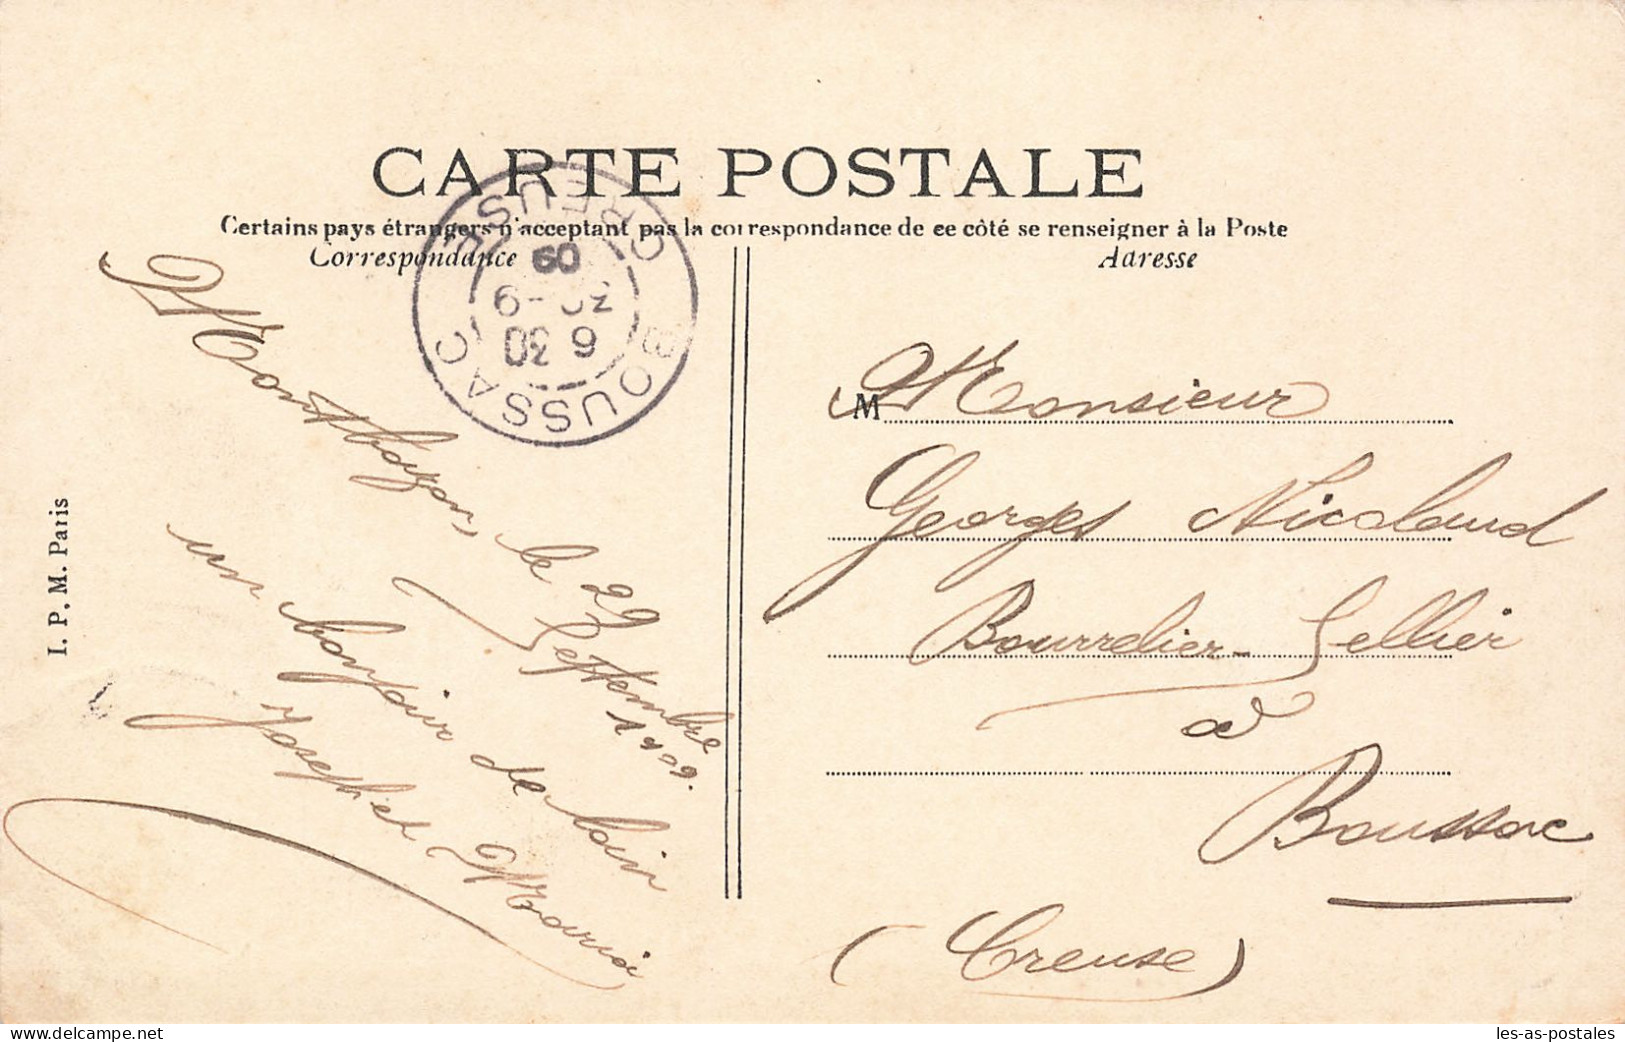 CARTE POSTALE
Certains pays étrangers n'acceptant pas la correspondance de ce côté se renseigner à la Poste
Correspondance
Adresse
BOUSSAC
CREUSE
6 30
30-9
09
Montbazon, le 29
Septembre
1909.
un bonjour de loin
Joseph et Maria
M Monsieur
Georges Nicolaud
Bourrelier-Sellier
à
Boussac
(Creuse)
I. P. M. Paris
les-as-postales